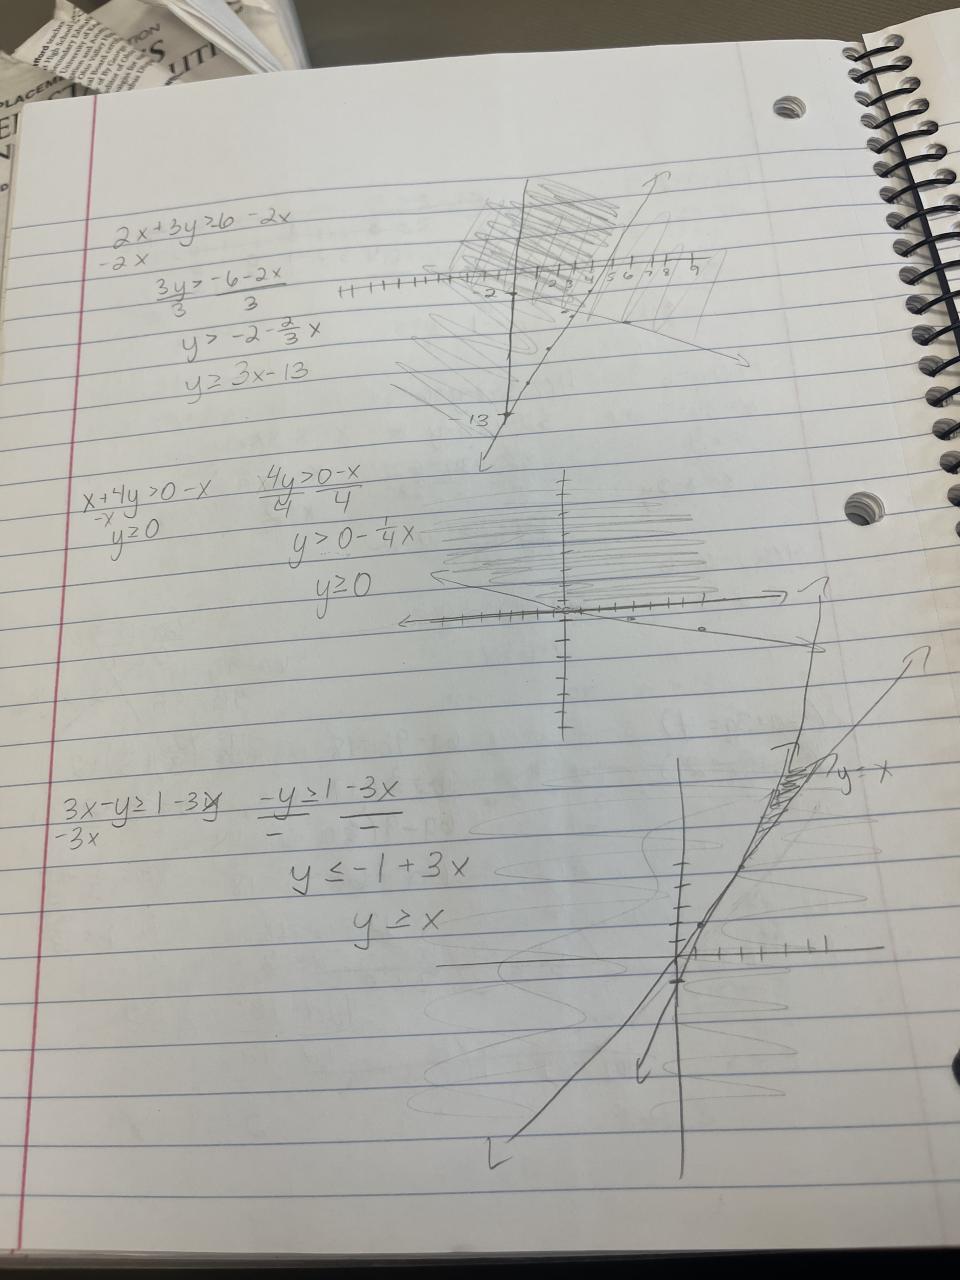 2x+3y>6-2x
-2x
3y>-6-2x
3 3
y > -2-2/3x
y≥3x-13
-2
2 3 4 5 6 7 8 9
-13
x+4y>0-x
-x
y≥0
4y>0-x
4 4
y > 0-1/4x
y≥0
3x-y≥1-3x
-3x
-y≥1-3x
- -
y≤-1+3x
y≥x
y=x